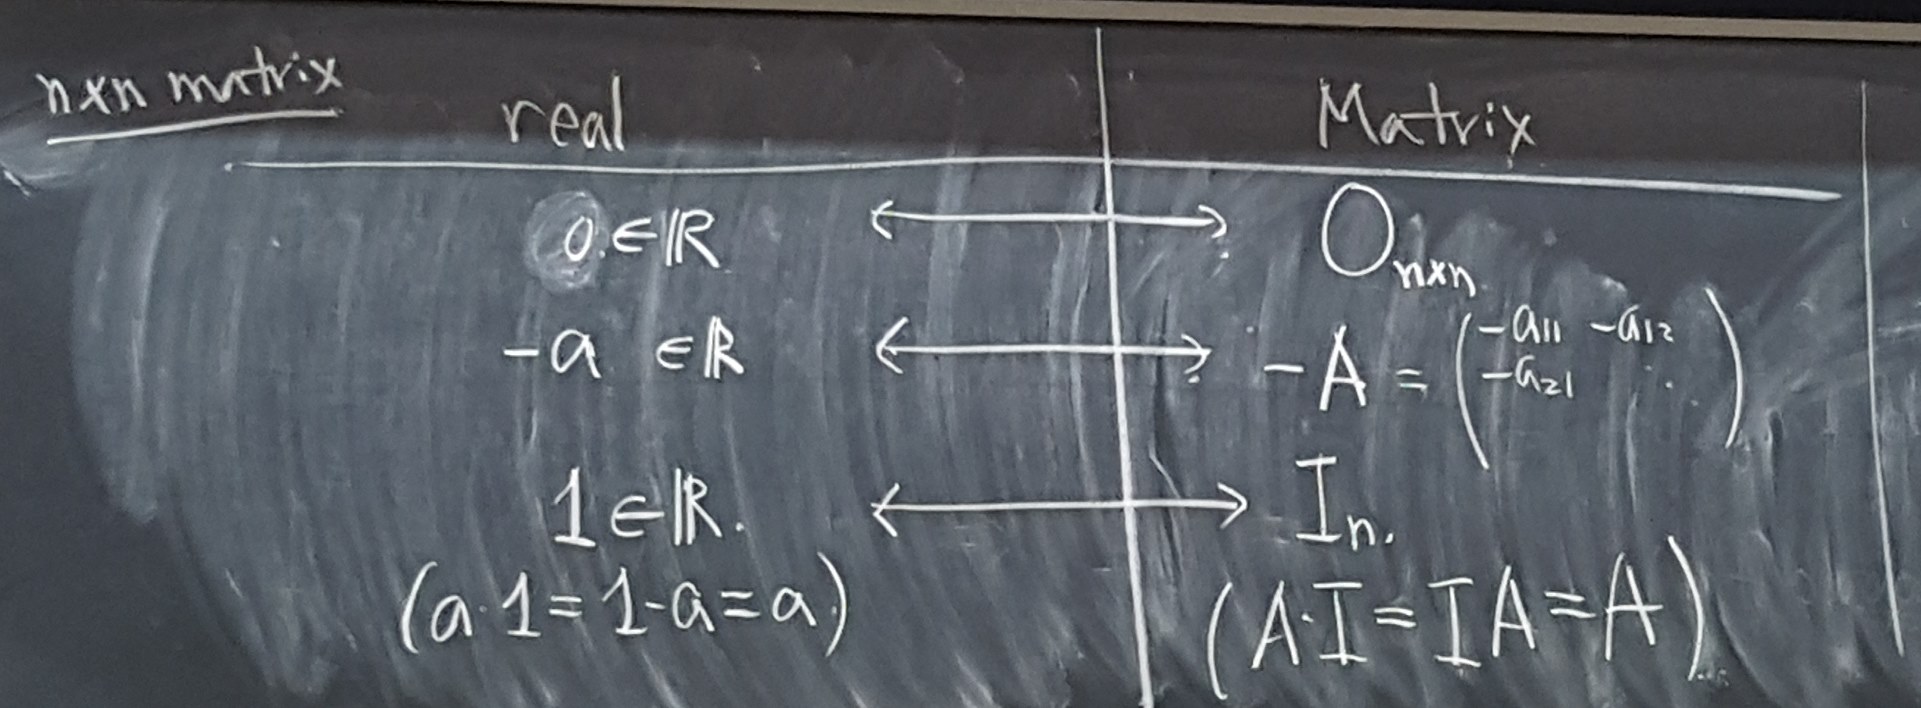 nxn matrix
real Matrix
0 ∈ ℝ ⟷ O_{n×n}
-a ∈ ℝ ⟷ -A = ( -a₁₁ -a₁₂
-a₂₁ ⋱ )
1 ∈ ℝ. ⟷ Iₙ.
(a·1=1-a=a) (A·I=IA=A)